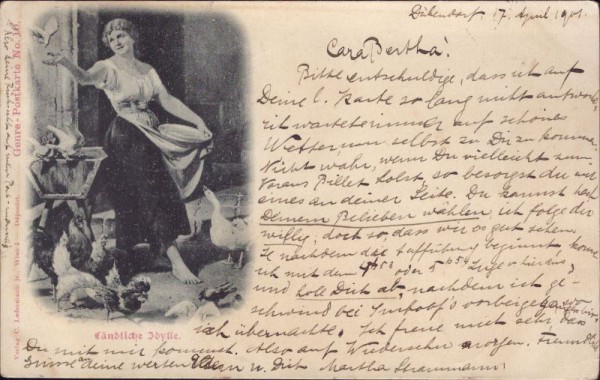 Dübendorf 17. April 1901.
Cara Bertha!
Bitte entschuldige, dass ich auf
Deine l. Karte so lang nicht antwortete,
ich wartete immer auf schönes
Wetter, um selbst zu Dir zu kommen.
Nicht wahr, wenn Du vielleicht zum
Voraus Billet holst, so besorgst du mir
eines an deiner Seite. Du kannst nach
Deinem Belieben wählen, ich folge dir
willig, doch so, dass wir es gut sehen.
Je nachdem die Aufführung beginnt, komme
ich mit dem oder 5 Zuge hinein
und hole Dich ab, nachdem ich ge-
schwind bei vorbeigegangen
ich übernachte. Ich freue mich sehr, dass
Du mit mir kommst. Also auf Wiedersehn morgen. Freundliche
Grüsse an deine werten Eltern u. Dich Martha Strammann
Genre-Postkarte No. 10.
Ländliche Idylle.